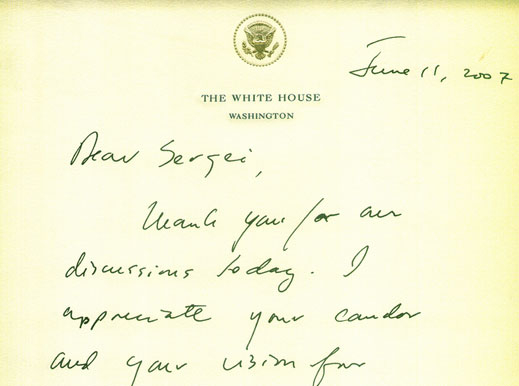 June 11, 2007
THE WHITE HOUSE
WASHINGTON
Dear Sergei,
Thank you for our
discussions today. I
appreciate your candor
and your vision for